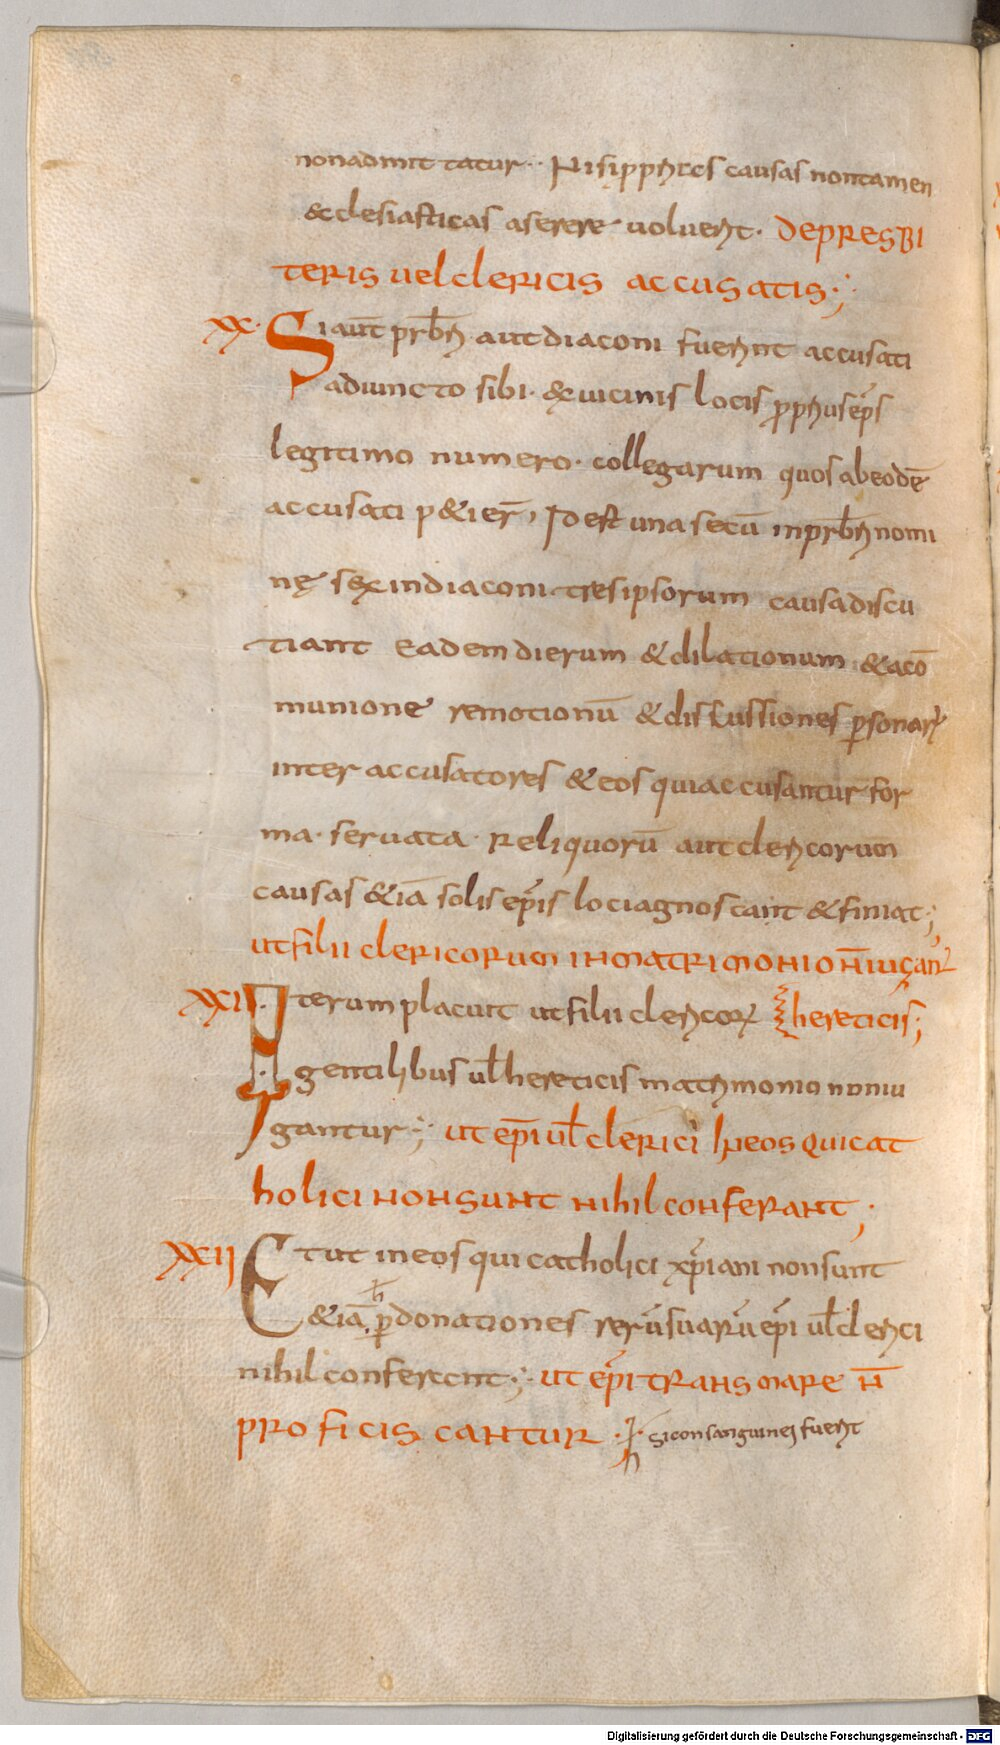 non admittatur·· Nisi pphrcs causas non tamen
&clesiasticas aserere uoluerit· DEPRESBI
TERIS uel clericis accusatis·;
XX· Si aut̄ prb̄ri aut diaconi fuerint accusati
adiuncto sibi· & uicinis locis pphus ep̄s
legitimo numero· collegarum quos ab eodē
accusati p&ier̄, Id est una secū in prb̄ri nomi
nę sex in diaconi tres ipsorum causa discu
tiant Eadem dierum & dilationum & acō
munione remotionū & discussiones p̱sonarꝝ
inter accusatores & eos qui accusantur for
ma· seruata· Reliquorū aut clericorum
causas &iā solis ep̄is loci agnoscant & finiat·;
ut filii clericorum in matrimonio n̄ iuḡant̄
XXI Iterum placuit ut filii clericorꝝ hereticis;
gentilibus ul̄ hereticis matrimonio non iu
gantur·; ut ep̄i ul̄ clerici In eos qui cat
holici non sunt nihil conferant;
XXII Et ut in eos qui catholici xp̄iani non sunt
&iā· p̱ donationes rerū suarū ep̄i ul̄ clerici
nihil conferent·; ut ep̄i trans mare n̄
proficiscantur· h si consanguinei fuerit
Digitalisierung gefördert durch die Deutsche Forschungsgemeinschaft - DFG